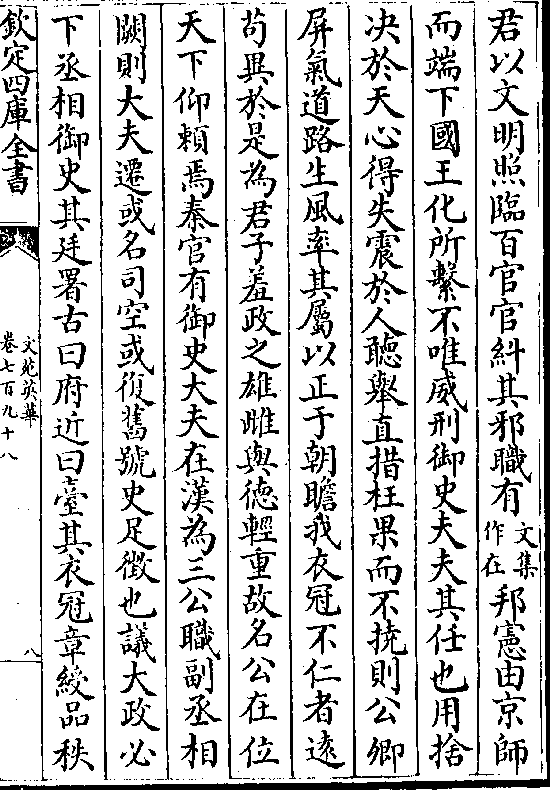 君以文明照臨百官官糾其邪職有文集作在邦憲由京師
而端下國王化所繫不唯威刑御史夫夫其任也用捨
决於天心得失震於人聽舉直措枉果而不撓則公卿
屏氣道路生風率其屬以正于朝瞻我衣冠不仁者逺
苟異於是為君子羞政之雄雌與徳輕重故名公在位
天下仰頼焉秦官有御史大夫在漢為三公職副丞相
闕則大夫遷或名司空或復舊號史足徴也議大政必
下丞相御史其廷署古曰府近曰臺其衣冠章綬品秩
欽定四庫全書
文苑英華
卷七百九十八
八